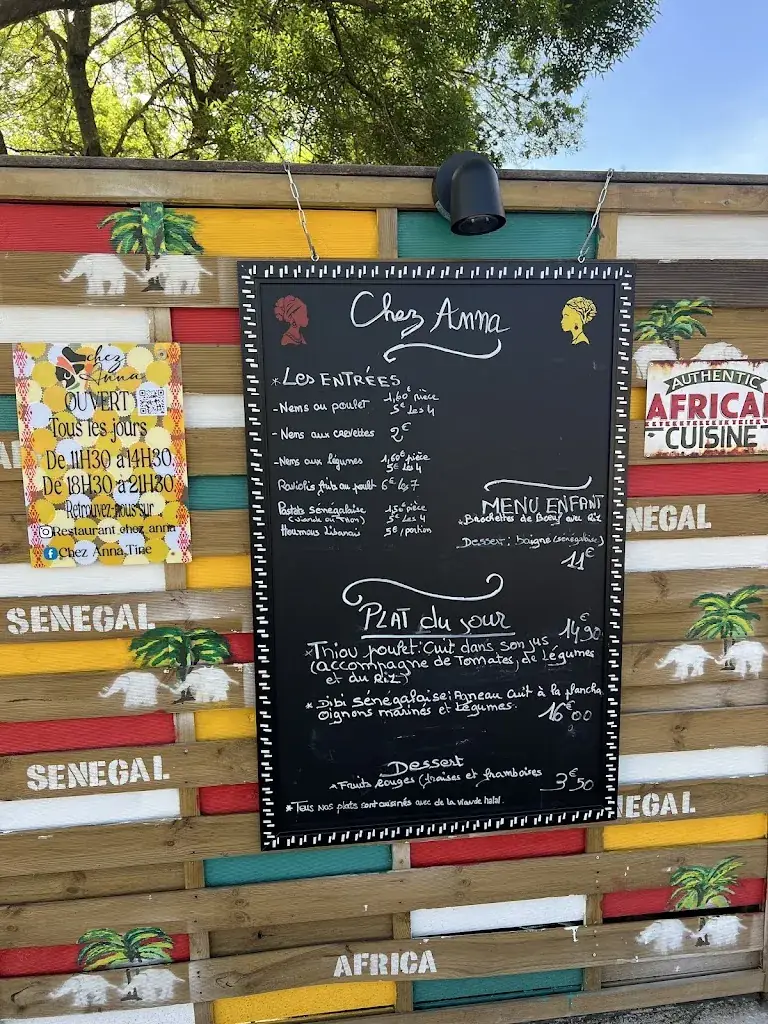 Chez Anna
*Les ENTRÉES
- Nems au poulet 1,60€ pièce
5€ les 4
- Nems aux crevettes 2€
- Nems aux légumes 1,60€ pièce
5€ les 4
Raviolis frits au poulet 6€ les 7
Pastels Sénégalaise 1,50€ pièce
(viande ou thon) 5€ les 4
Houmous Libanais 5€/portion
MENU ENFANT
*Brochettes de Boeuf avec Riz
Dessert: (sénégalaise)
11€
PLAT du jour
*Thiou poulet: Cuit dans son jus 14€90
(accompagne de Tomates, de Légumes
et du Riz)
* Dibi Sénégalaise: Agneau Cuit à la plancha
Oignons marinés et Légumes. 16€00
Dessert
*Fruits Rouges (fraises et framboises 3€50
*Tous nos plats sont cuisinés avec de la viande halal.
chez
Anna
OUVERT
Tous les jours
De 11H30 à 14H30
De 18H30 à 21H30
Retrouvez-nous sur
Restaurant_chez_anna
Chez Anna Tine
AUTHENTIC
AFRICAN
CUISINE
NEGAL
SENEGAL
SENEGAL
NEGAL
AFRICA